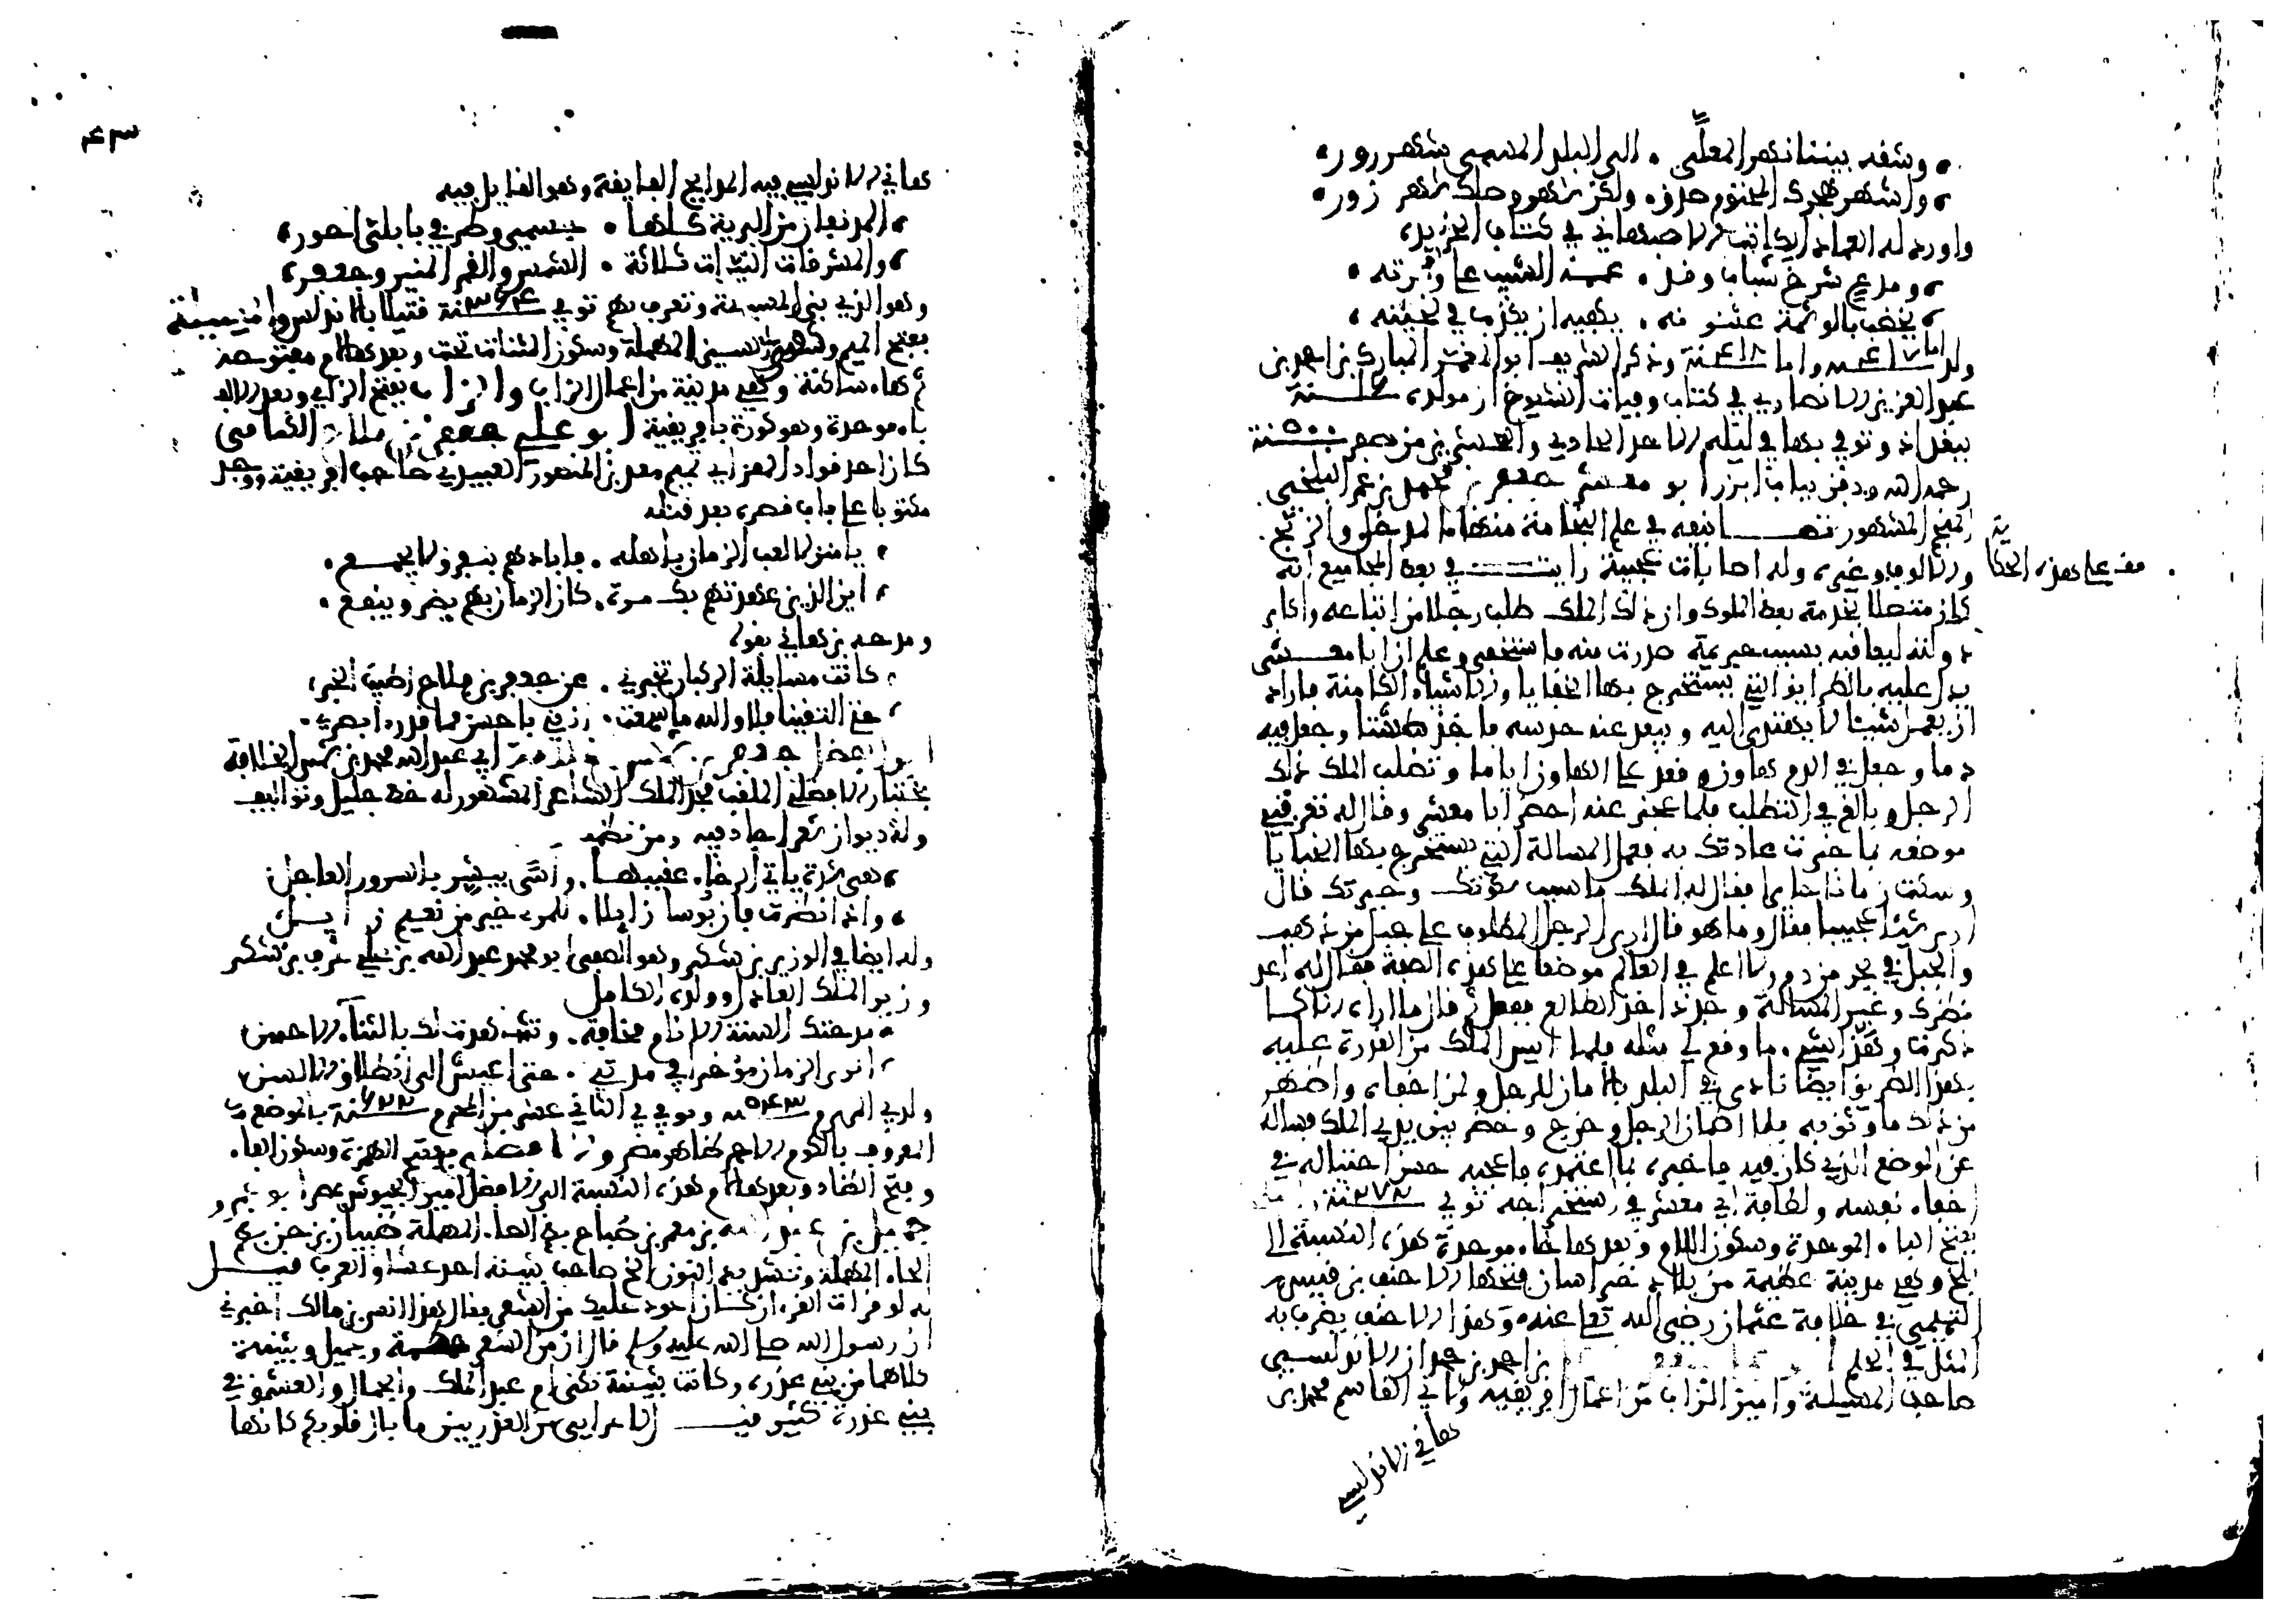 وشقه بيننا نهر المعلّى . الى البلد المسمى شهرزور
واشهر هجرك المحتوم صدق . ولكن شهر وصلك شهر زور
واورد له العماد الكاتب الاصبهاني في كتاب الخريدة
ومدع شرخ شباب وقد . عممه الشيب على وفرته
يخضب بالوشمة عثنونه . يكفيه ان يكذب في لحيته
ولد اما ٤١٧ سنة واما ٤١٨ سنة وذكر الشريف ابو المعمر المبارك بن احمد بن
عبد العزيز الانصاري في كتاب وفيات الشيوخ ان مولده سنة
ببغداد وتوفي بها في ليلة الاحد الحادي والعشرين من صفر سنة ٥٠٠
رحمه الله ودفن بباب ابزر ابو معشر جعفر بن محمد بن عمر البلخي
المنجم المشهور تصانيفه في علم النجامة منها المدخل والزيج
والالوف وغيره وله اصابات عجيبة رايت في بعض المجاميع انه
كان متصلا بخدمة بعض الملوك وان ذلك الملك طلب رجلا من اتباعه واكابر
دولته ليعاقبه بسبب جريمة صدرت منه فاستخفى وعلم ان ابا معشر
يدل عليه بالطرايق التي يستخرج بها الخفايا والاشياء الكامنة فاراد
ان يعمل شيئا لا يهتدى اليه ويبعد عنه حدسه فاخذ طشتا وجعل فيه
دما وجعل في الدم هاون وقعد على الهاون اياما وتطلب الملك ذلك
الرجل وبالغ في التطلب فلما عجز عنه احضر ابا معشر وقال له تعرفني
موضعه بما جرت عادتك به فعمل المسالة التي يستخرج بها الخبايا
وسكت زمانا حايرا فقال له الملك ما سبب سكوتك وحيرتك قال
ارى شيئا عجيبا فقال وما هو قال ارى الرجل المطلوب على جبل من ذهب
والجبل في بحر من دم ولا اعلم في العالم موضعا على هذه الصفة فقال له اعد
نظرك وغير المسالة وجدد اخذ الطالع ففعل ثم قال ما اراه الا كما
ذكرت وهذا شيء ما وقع لي مثله فلما ايس الملك من القدرة عليه
بهذا الطريق ايضا نادى في البلد بالامان للرجل ولمن اخفاه واظهر
من ذلك ما وثق به فلما اطمان الرجل خرج وحضر بين يدي الملك فساله
عن الموضع الذي كان فيه فاخبره بما اعتمده فاعجبه حسن احتياله في
اخفاء نفسه ولطافة ابي معشر في استخراجه توفي سنة ٢٧٢
بفتح الباء الموحدة وسكون اللام وبعدها خاء موحدة هذه النسبة الى
بلخ وهي مدينة عظيمة من بلاد خراسان فتحها الاحنف بن قيس
التميمي في خلافة عثمان رضي الله تعالى عنه وهذا الاحنف يضرب به
المثل في الحلم بن احمد بن حمدان الاندلسي
صاحب المسيلة وامير الزاب من اعمال افريقية ولابي القاسم محمد بن
هاني الاندلسي
قف على هذه الحكاية
٤٣
هاني الاندلسي فيه المدايح الفايقة وهو القايل فيه
المدنفان من البرية كلها . جسمي وطرف بابلي احور
والمشرقات النيرات ثلاثة . الشمس والقمر المنير وجعفر
وهو الذي بنى المسيلة وتعرف بهم توفي سنة ٣٦٤ قتيلا بالاندلس والمسيلة
بفتح الميم وكسر السين المهملة وسكون المثناة تحت وبعدها لام مفتوحة
ثم هاء ساكنة وهي مدينة من اعمال الزاب والزاب بفتح الزاي وبعد الالف
باء موحدة وهو كورة بافريقية ابو علي جعفر بن فلاح الكتامي
كان احد قواد المعز ابي تميم معد بن المنصور العبيدي صاحب افريقية ووجد
مكتوبا على باب قصره بعد قتله
يا منزلا لعب الزمان باهله . فابادهم بتفرق لا يجمع
اين الذين عهدتهم بك مرة . كان الزمان بهم يضر وينفع
ومدحه بن هاني بقوله
كانت مسايلة الركبان تخبرني . عن جعفر بن فلاح اطيب الخبر
حتى التقينا فلا والله ما سمعت . اذني باحسن مما قد راى بصري
ابو الفضل جعفر بن شمس الخلافة ابي عبد الله محمد بن شمس الخلافة
مختار الافضلي الملقب مجد الملك الشاعر المشهور له خط جليل وتواليف
وله ديوان شعر اجاد فيه ومن نظمه
هي شدة ياتي الرخاء عقيبها . واسًى يبشر بالسرور العاجل
واذا نظرت فان بؤسا زايلا . للمرء خير من نعيم زايل
وله ايضا في الوزير بن شكر وهو الصفي ابو محمد عبد الله بن علي عرف بن شكر
وزير الملك العادل وولده الكامل
مدحتك السنة الانام مخافة . وتشاهدت لك بالثناء الاحسن
اترى الزمان مؤخرا في مدتي . حتى اعيش الى انطلاق الالسن
ولد في المحرم سنة ٥٤٣ وتوفي في الثاني عشر من المحرم سنة ٦٢٢ بالموضع
المعروف بالكوم الاحمر ظاهر مصر والافضلي بفتح الهمزة وسكون الفاء
وفتح الضاد وبعدها لام هذه النسبة الى الافضل امير الجيوش بمصر ابو عمرو
جميل بن عبد الله بن معمر بن صباح بضم الصاد المهملة ظبيان بن حن بضم
الحاء المهملة وتشديد النون الخ صاحب بثينة احد عشاق العرب قيل
له لو قرات القران كان اعود عليك من الشعر فقال هذا انس بن مالك اخبرني
ان رسول الله صلى الله عليه وسلم قال ان من الشعر حكمة وجميل وبثينة
كلاهما من بني عذرة وكانت بثينة تكنى ام عبد الملك والجمال والعشق في
بني عذرة كثير قيل لاعرابي من العذريين ما بال قلوبكم كانها